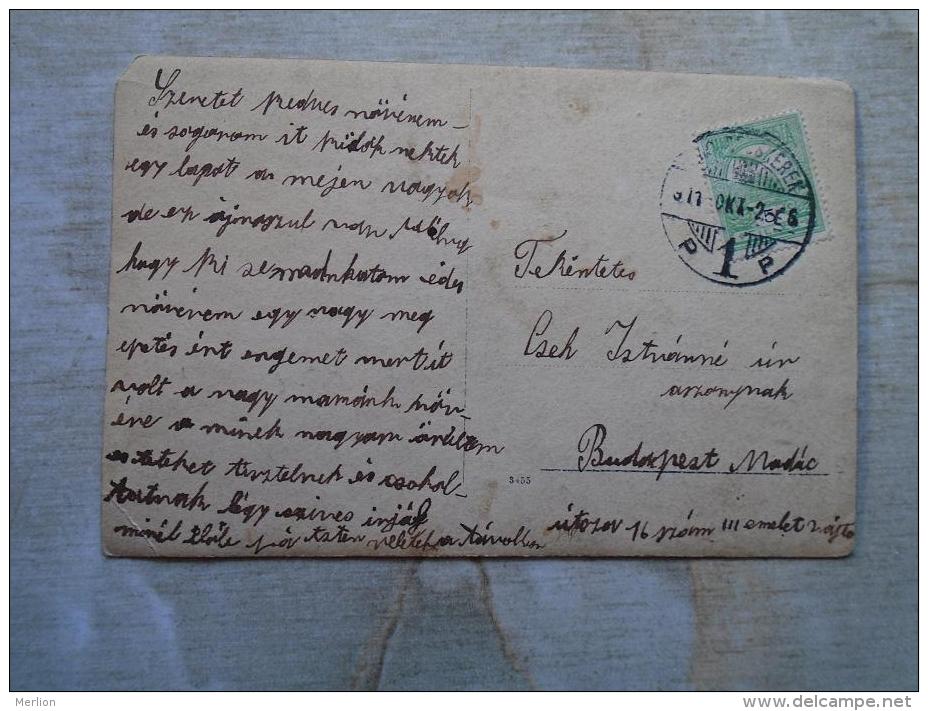 Szeretet kedves növérem
és sogorom it küldök nektek
egy lapot a mejen vagyok
de ez ujonszul van
hogy ki se édes
növérem egy nagy meg
epetés ért engemet mert it
volt a nagy mamánk növ-
ére a minek nagyon örültem
tisztelnek és csokol-
tatnak légy szives irjál
minél Elöb Isten veletek a távolban
OKT
1
P P
Tekéntetes
Cseh Istvánné úr
aszonynak
Budapest Madác
útoza 16 szám III emelet 2 ajto
3455
Merlion
www.delcampe.net